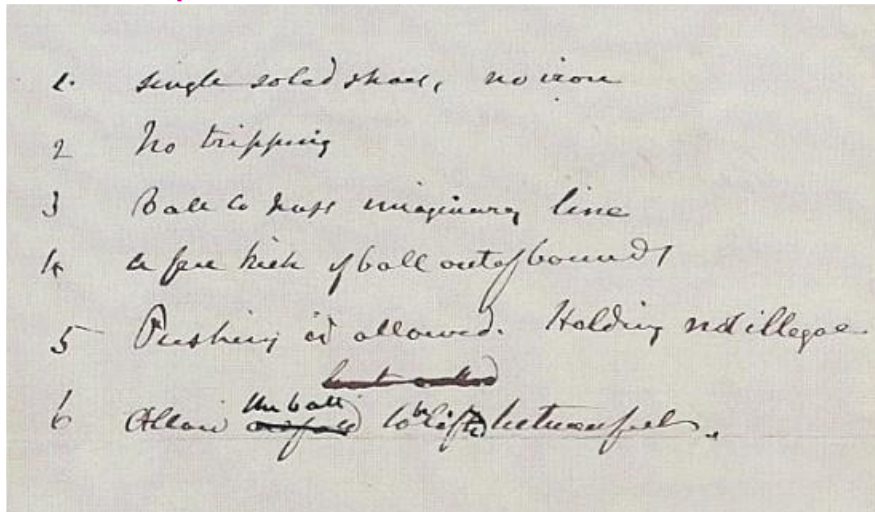 1. single soled shoes, no iron
2 No tripping
3 Ball to pass imaginary line
4 a free kick if ball out of bounds
5 Pushing is allowed. Holding not illegal
the ball
6 Allow to be lifted between feet.